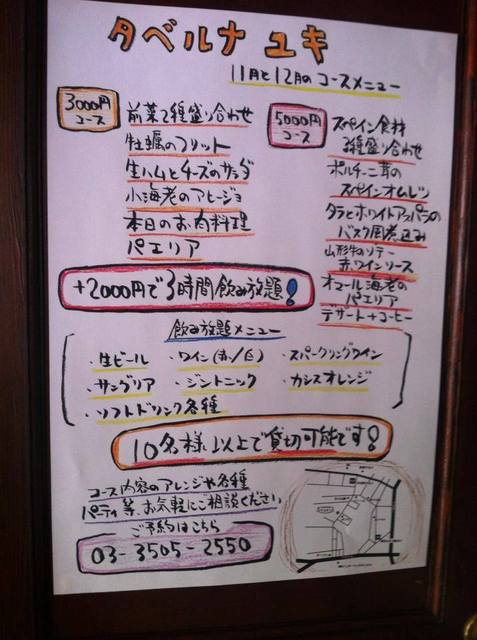 タベルナ ユキ
11月と12月のコースメニュー
3000円
コース
前菜2種盛り合わせ
牡蠣のフリット
生ハムとチーズのサラダ
小海老のアヒージョ
本日のお肉料理
パエリア
5000円
コース
スペイン食材
3種盛り合わせ
ポルチーニ茸の
スペインオムレツ
タラとホワイトアスパラの
バスク風煮込み
山形牛のソテー
赤ワインソース
オマール海老の
パエリア
デザート+コーヒー
+2000円で3時間飲み放題!
飲み放題メニュー
・生ビール ・ワイン(赤/白) ・スパークリングワイン
・サングリア ・ジントニック ・カシスオレンジ
・ソフトドリンク各種
10名様以上で貸切可能です!
コース内容のアレンジや各種
パーティ等、お気軽にご相談ください
ご予約はこちら
03-3505-2550